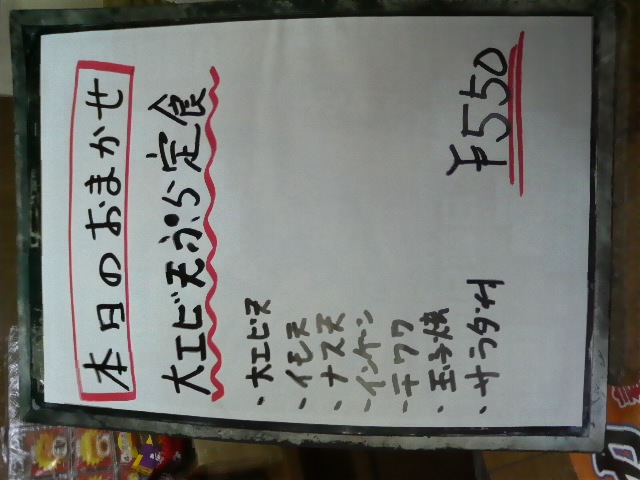 本日のおまかせ
大エビ天ぷら定食
・大エビ天
・イモ天
・ナス天
・インゲン
・チクワ
・玉子焼
・サラダ付
¥550